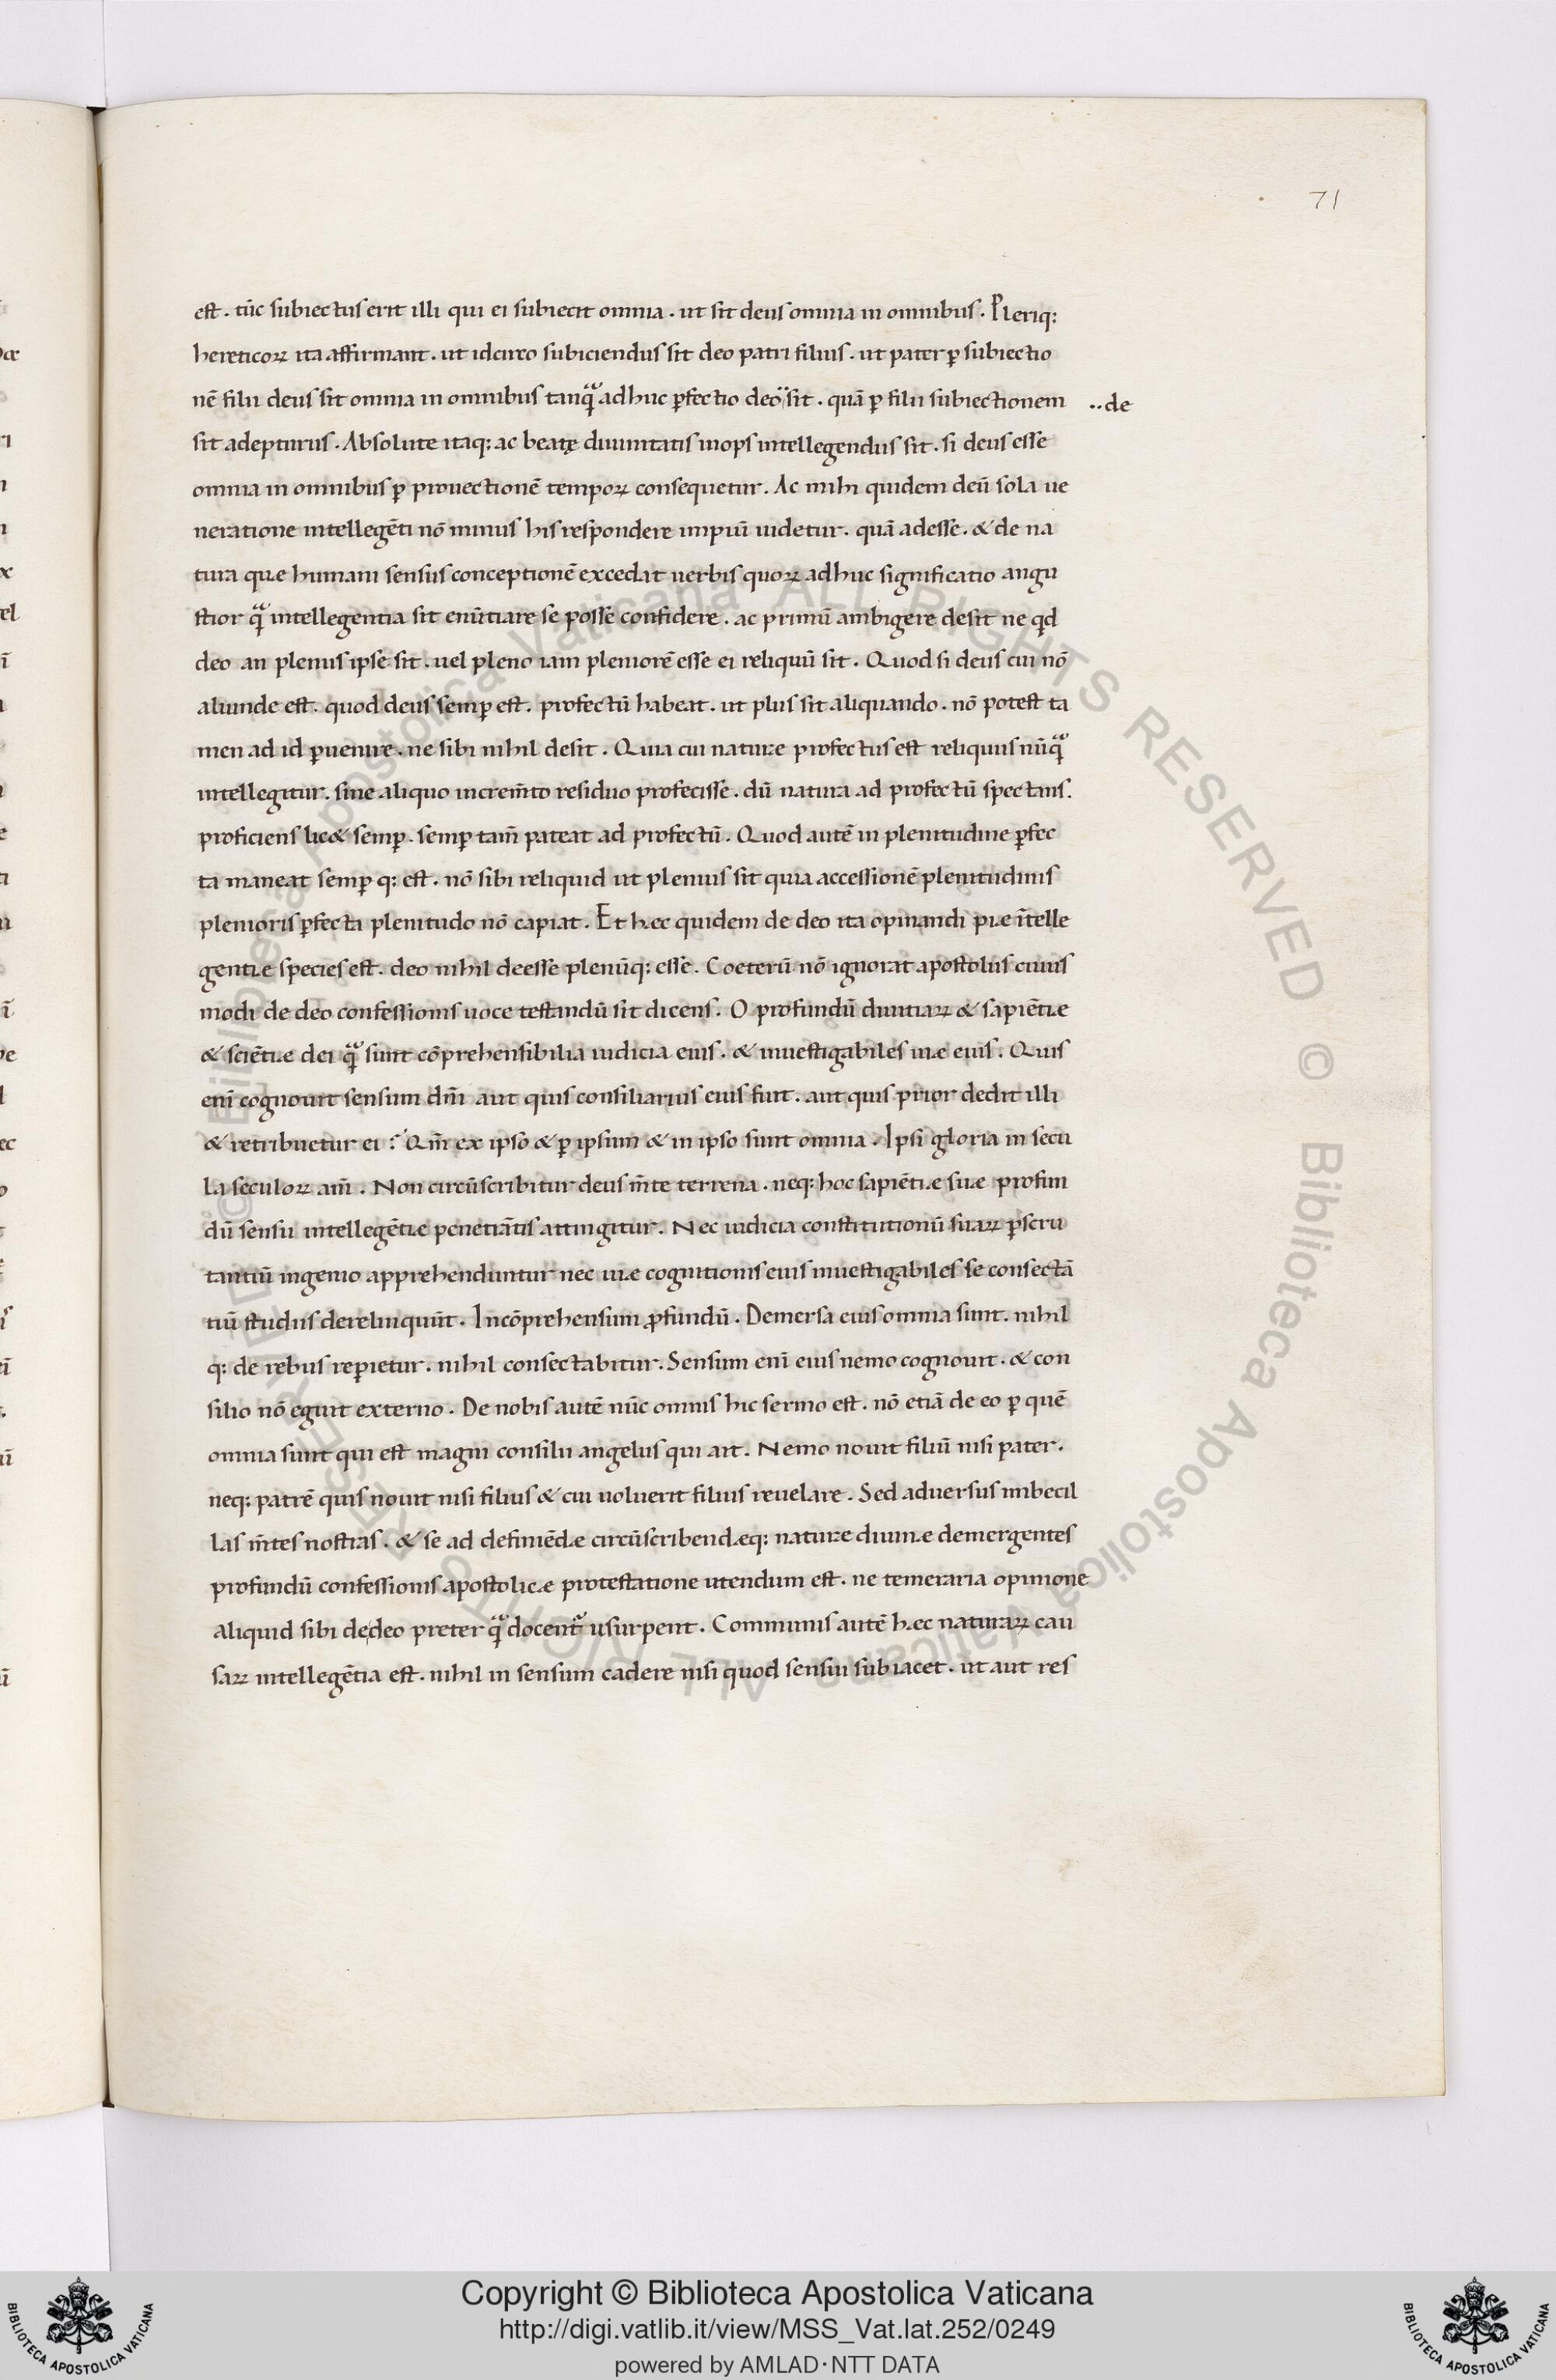 71
est. tūc subiectus erit illi qui ei subiecit omnia. ut sit deus omnia in omnibus. Pleriq:
hereticoꝝ ita affirmant. ut idcirco subiciendus sit deo patri filius. ut pater ꝑ subiectio
nē filii deus sit omnia in omnibus tanqͣ adhuc ꝑfectio deo¨sit. quā ꝑ filii subiectionem ..de
sit adepturus. Absolute itaq: ac beatę diuinitatis inops intellegendus sit. si deus esse
omnia in omnibus ꝑ prouectionē tempoꝝ consequetur. Ac mihi quidem deū sola ue
neratione intellegēti nō minus his respondere impiū uidetur. quā adesse. & de na
tura quæ humani sensus conceptionē excedat uerbis quoꝝ adhuc significatio angu
stior qͣ intellegentia sit enūtiare se posse confidere. ac primū ambigere desit ne qd
deo an plenus ipse sit. uel pleno iam pleniorē esse ei reliquū sit. Quod si deus cui nō
aliunde est. quod deus semꝑ est. profectū habeat. ut plus sit aliquando. nō potest ta
men ad id ꝑuenire. ne sibi nihil desit. Quia cui naturæ profectus est reliquus nūqͣ
intellegitur. sine aliquo incremto residuo profecisse. dū natura ad profectū spectans.
proficiens lic& semꝑ. semꝑ tam̄ pateat ad profectū. Quod autē in plenitudine ꝑfec
ta maneat semꝑ q: est. nō sibi reliquid ut plenius sit quia accessionē plenitudinis
plenioris ꝑfecta plenitudo nō capiat. Et hæc quidem de deo ita opinandi piæ ītelle
gentiæ species est. deo nihil deesse plenūq: esse. Coeterū nō ignorat apostolus cuius
modi de deo confessionis uoce testandū sit dicens. O profundū diuitiaꝝ & sapiētiæ
& sciētiæ dei qͣ sunt cōprehensibilia iudicia eius. & inuestigabiles uiæ eius. Quis
enī cognouit sensum dn̄i aut quis consiliarius eius fuit. aut quis prior dedit illi
& retribuetur ei :́ Qm̄ ex ipso & ꝑ ipsum & in ipso sunt omnia. Ipsi gloria in secu
la seculoꝝ am̄. Non circūscribitur deus m̄te terrena. neq: hoc sapiētiæ suæ profun
dū sensu intellegētiæ penetrātis attingitur. Nec iudicia constitutionū suaꝝ ꝑscru
tantiū ingenio apprehenduntur nec uiæ cognitionis eius inuestigabiles se consectā
tiū studiis derelinquūt. Incōprehensum ꝓfundū. Demersa eius omnia sunt. nihil
q: de rebus reꝑietur. nihil consectabitur. Sensum enī eius nemo cognouit. & con
silio nō eguit externo. De nobis autē nūc omnis hic sermo est. nō etiā de eo ꝑ quē
omnia sunt qui est magni consilii angelus qui ait. Nemo nouit filiū nisi pater.
neq: patrē quis nouit nisi filius & cui uoluerit filius reuelare. Sed aduersus imbecil
las m̄tes nostras. & se ad definiēdæ circūscribendæq: naturæ diuinæ demergentes
profundū confessionis apostolicæ protestatione utendum est. ne temeraria opinione
aliquid sibi de deo preter qͣ docentͬ usurpent. Communis autē hæc naturaꝝ cau
saꝝ intellegētia est. nihil in sensum cadere nisi quod sensui subiacet. ut aut res
© Biblioteca Apostolica Vaticana ALL RIGHTS RESERVED
Copyright © Biblioteca Apostolica Vaticana
http://digi.vatlib.it/view/MSS_Vat.lat.252/0249
powered by AMLAD·NTT DATA
BIBLIOTECA APOSTOLICA VATICANA
BIBLIOTECA APOSTOLICA VATICANA